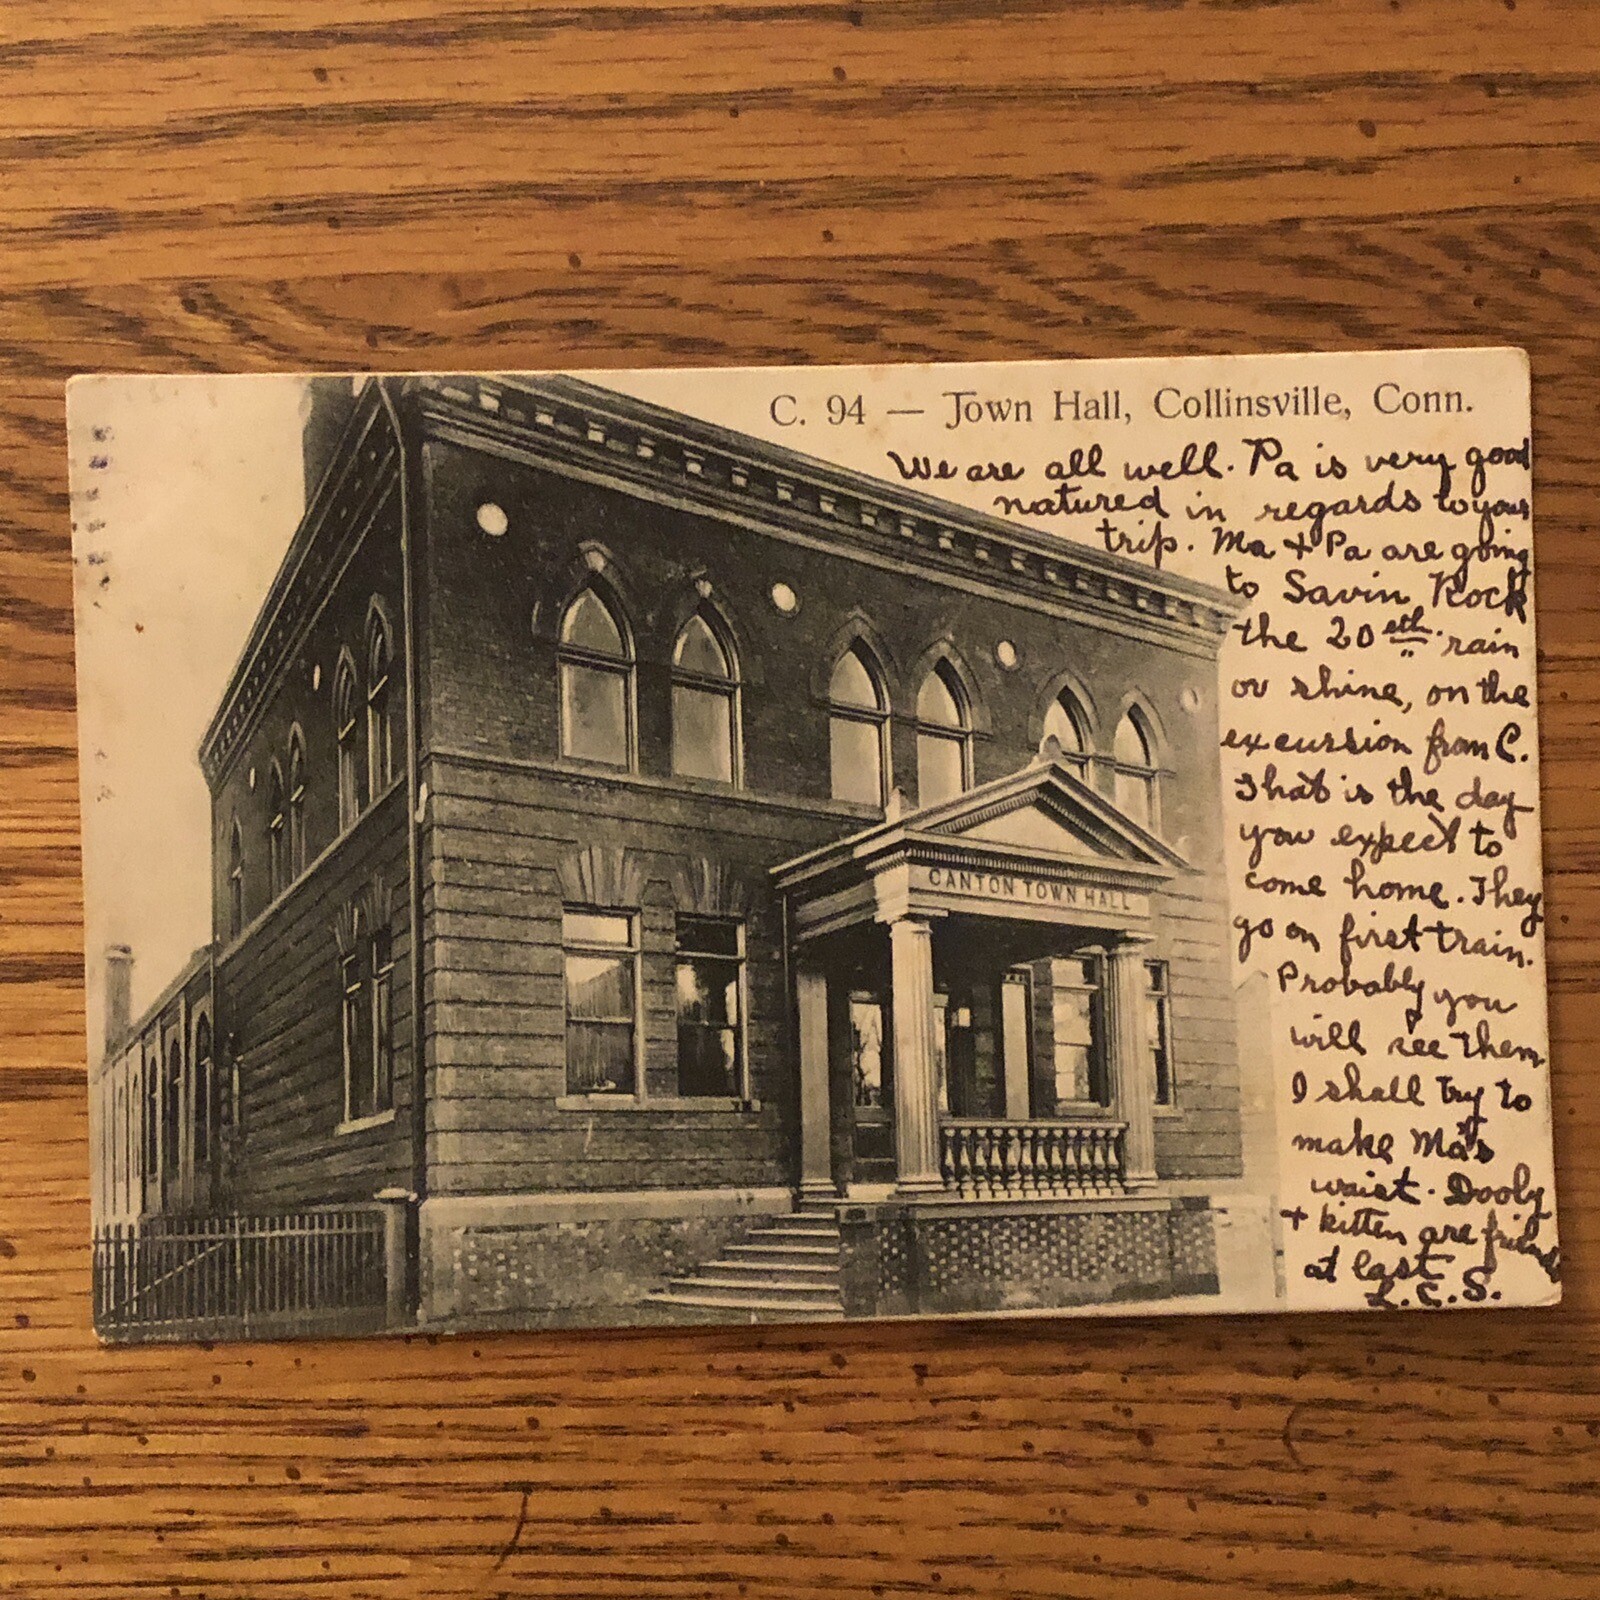 C. 94 — Town Hall, Collinsville, Conn.
We are all well. Pa is very good
natured in regards to your
trip. Ma + Pa are going
to Savin Rock
the 20eth rain
or shine, on the
excursion from C.
That is the day
you expect to
come home. They
go on first train.
Probably you
will see them
I shall try to
make Ma's
waist. Dooly
+ kitten are friends
at last
L.C.S.
CANTON TOWN HALL